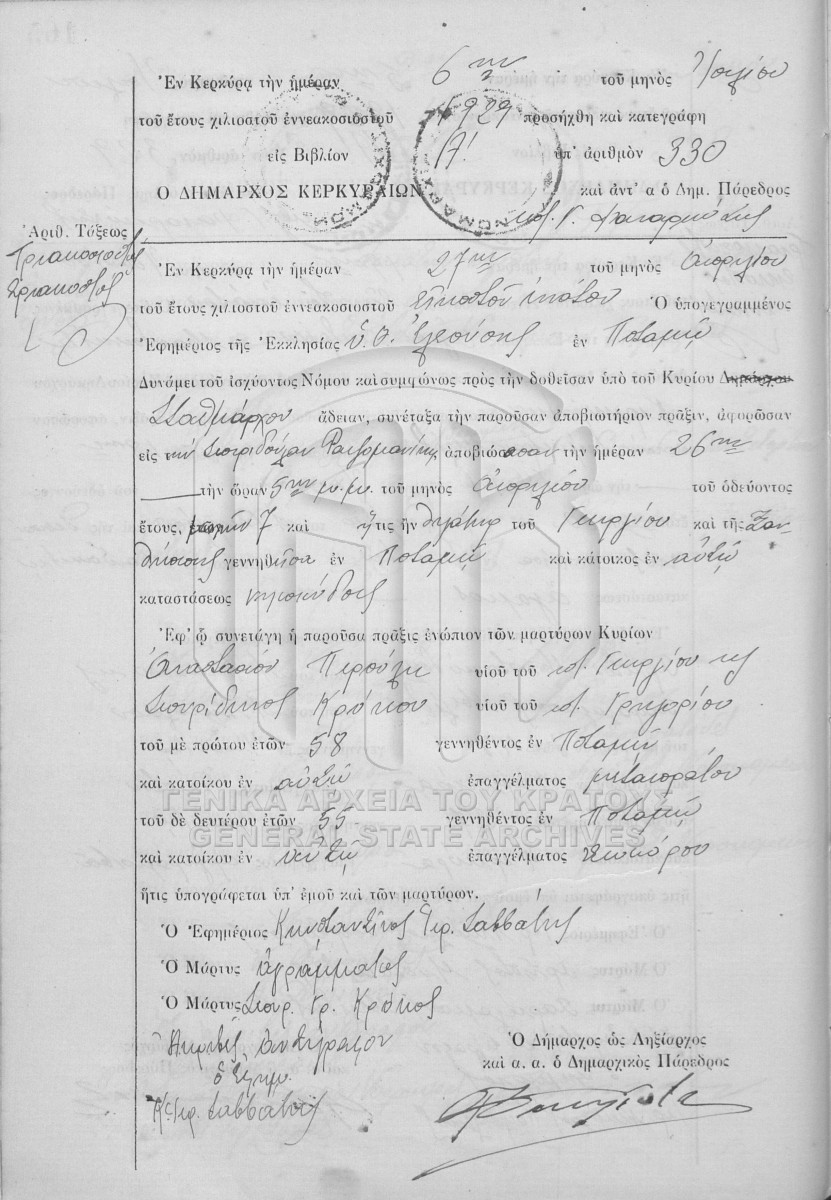 Ἐν Κερκύρᾳ τὴν ἡμέραν 6ην τοῦ μηνὸς
τοῦ ἔτους χιλιοστοῦ ἐννεακοσιοστοῦ 1929 προσήχθη καὶ κατεγράφη
εἰς Βιβλίον Α! ὑπ' ἀριθμὸν 330
Ο ΔΗΜΑΡΧΟΣ ΚΕΡΚΥΡΑΙΩΝ καὶ ἀντ' α ὁ Δημ. Πάρεδρος
Ἀριθ. Τάξεως
Τριακοσιοστὸς
Τριακοστὸς
Ἐν Κερκύρᾳ τὴν ἡμέραν 27ην τοῦ μηνὸς Ἀπριλίου
τοῦ ἔτους χιλιοστοῦ ἐννεακοσιοστοῦ εἰκοστοῦ ἐνάτου Ὁ ὑπογεγραμμένος
Ἐφημέριος τῆς Ἐκκλησίας ὑ. Θ. Ἐλεούσης ἐν Ποταμῷ
Δυνάμει τοῦ ἰσχύοντος Νόμου καὶ συμφώνως πρὸς τὴν δοθεῖσαν ὑπὸ τοῦ Κυρίου Δημάρχου
Σταθμάρχου ἄδειαν, συνέταξα τὴν παροῦσαν ἀποβιωτήριον πρᾶξιν, ἀφορῶσαν
εἰς τὴν Σπυριδούλαν ἀποβιώσασαν τὴν ἡμέραν 26ην
τὴν ὥραν 5ην μ.μ. τοῦ μηνὸς Ἀπριλίου τοῦ ὁδεύοντος
ἔτους, 7 καὶ ἥτις ἦν θυγάτηρ τοῦ Γεωργίου καὶ τῆς Ξαν-
θίππης γεννηθεῖσα ἐν Ποταμῷ καὶ κάτοικος ἐν αὐτῷ
καταστάσεως
Ἐφ' ᾧ συνετάγη ἡ παροῦσα πρᾶξις ἐνώπιον τῶν μαρτύρων Κυρίων
Ἀναστασίου Περούλη υἱοῦ τοῦ ποτ. Γεωργίου κ
Σπυρίδωνος Κρόκου υἱοῦ τοῦ ποτ. Γρηγορίου
τοῦ μὲ πρώτου ἐτῶν 58 γεννηθέντος ἐν Ποταμῷ
καὶ κατοίκου ἐν αὐτῷ ἐπαγγέλματος
τοῦ δὲ δευτέρου ἐτῶν 55 γεννηθέντος ἐν Ποταμῷ
καὶ κατοίκου ἐν αὐτῷ ἐπαγγέλματος
ΓΕΝΙΚΑ ΑΡΧΕΙΑ ΤΟΥ ΚΡΑΤΟΥΣ
GENERAL STATE ARCHIVES
ἥτις ὑπογράφεται ὑπ' ἐμοῦ καὶ τῶν μαρτύρων.
Ὁ Ἐφημέριος Κωνσταντῖνος Ἱερ. Σαββανης
Ὁ Μάρτυς ἀγράμματος
Ὁ Μάρτυς Σπυρ. Γρ. Κρόκος
Ἀκριβὲς Ἀντίγραφον
ὁ Ἐφημ.
Κς Ἱερ. Σαββανης
Ὁ Δήμαρχος ὡς Ληξίαρχος
καὶ α. α. ὁ Δημαρχικὸς Πάρεδρος